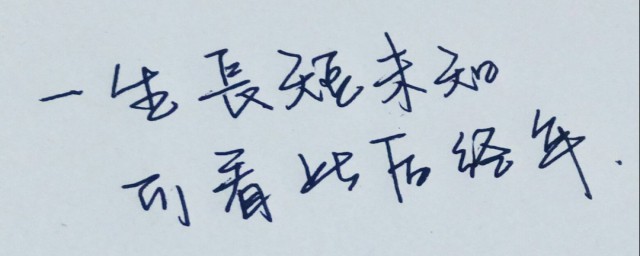 一生長短未知
可看此后经年.